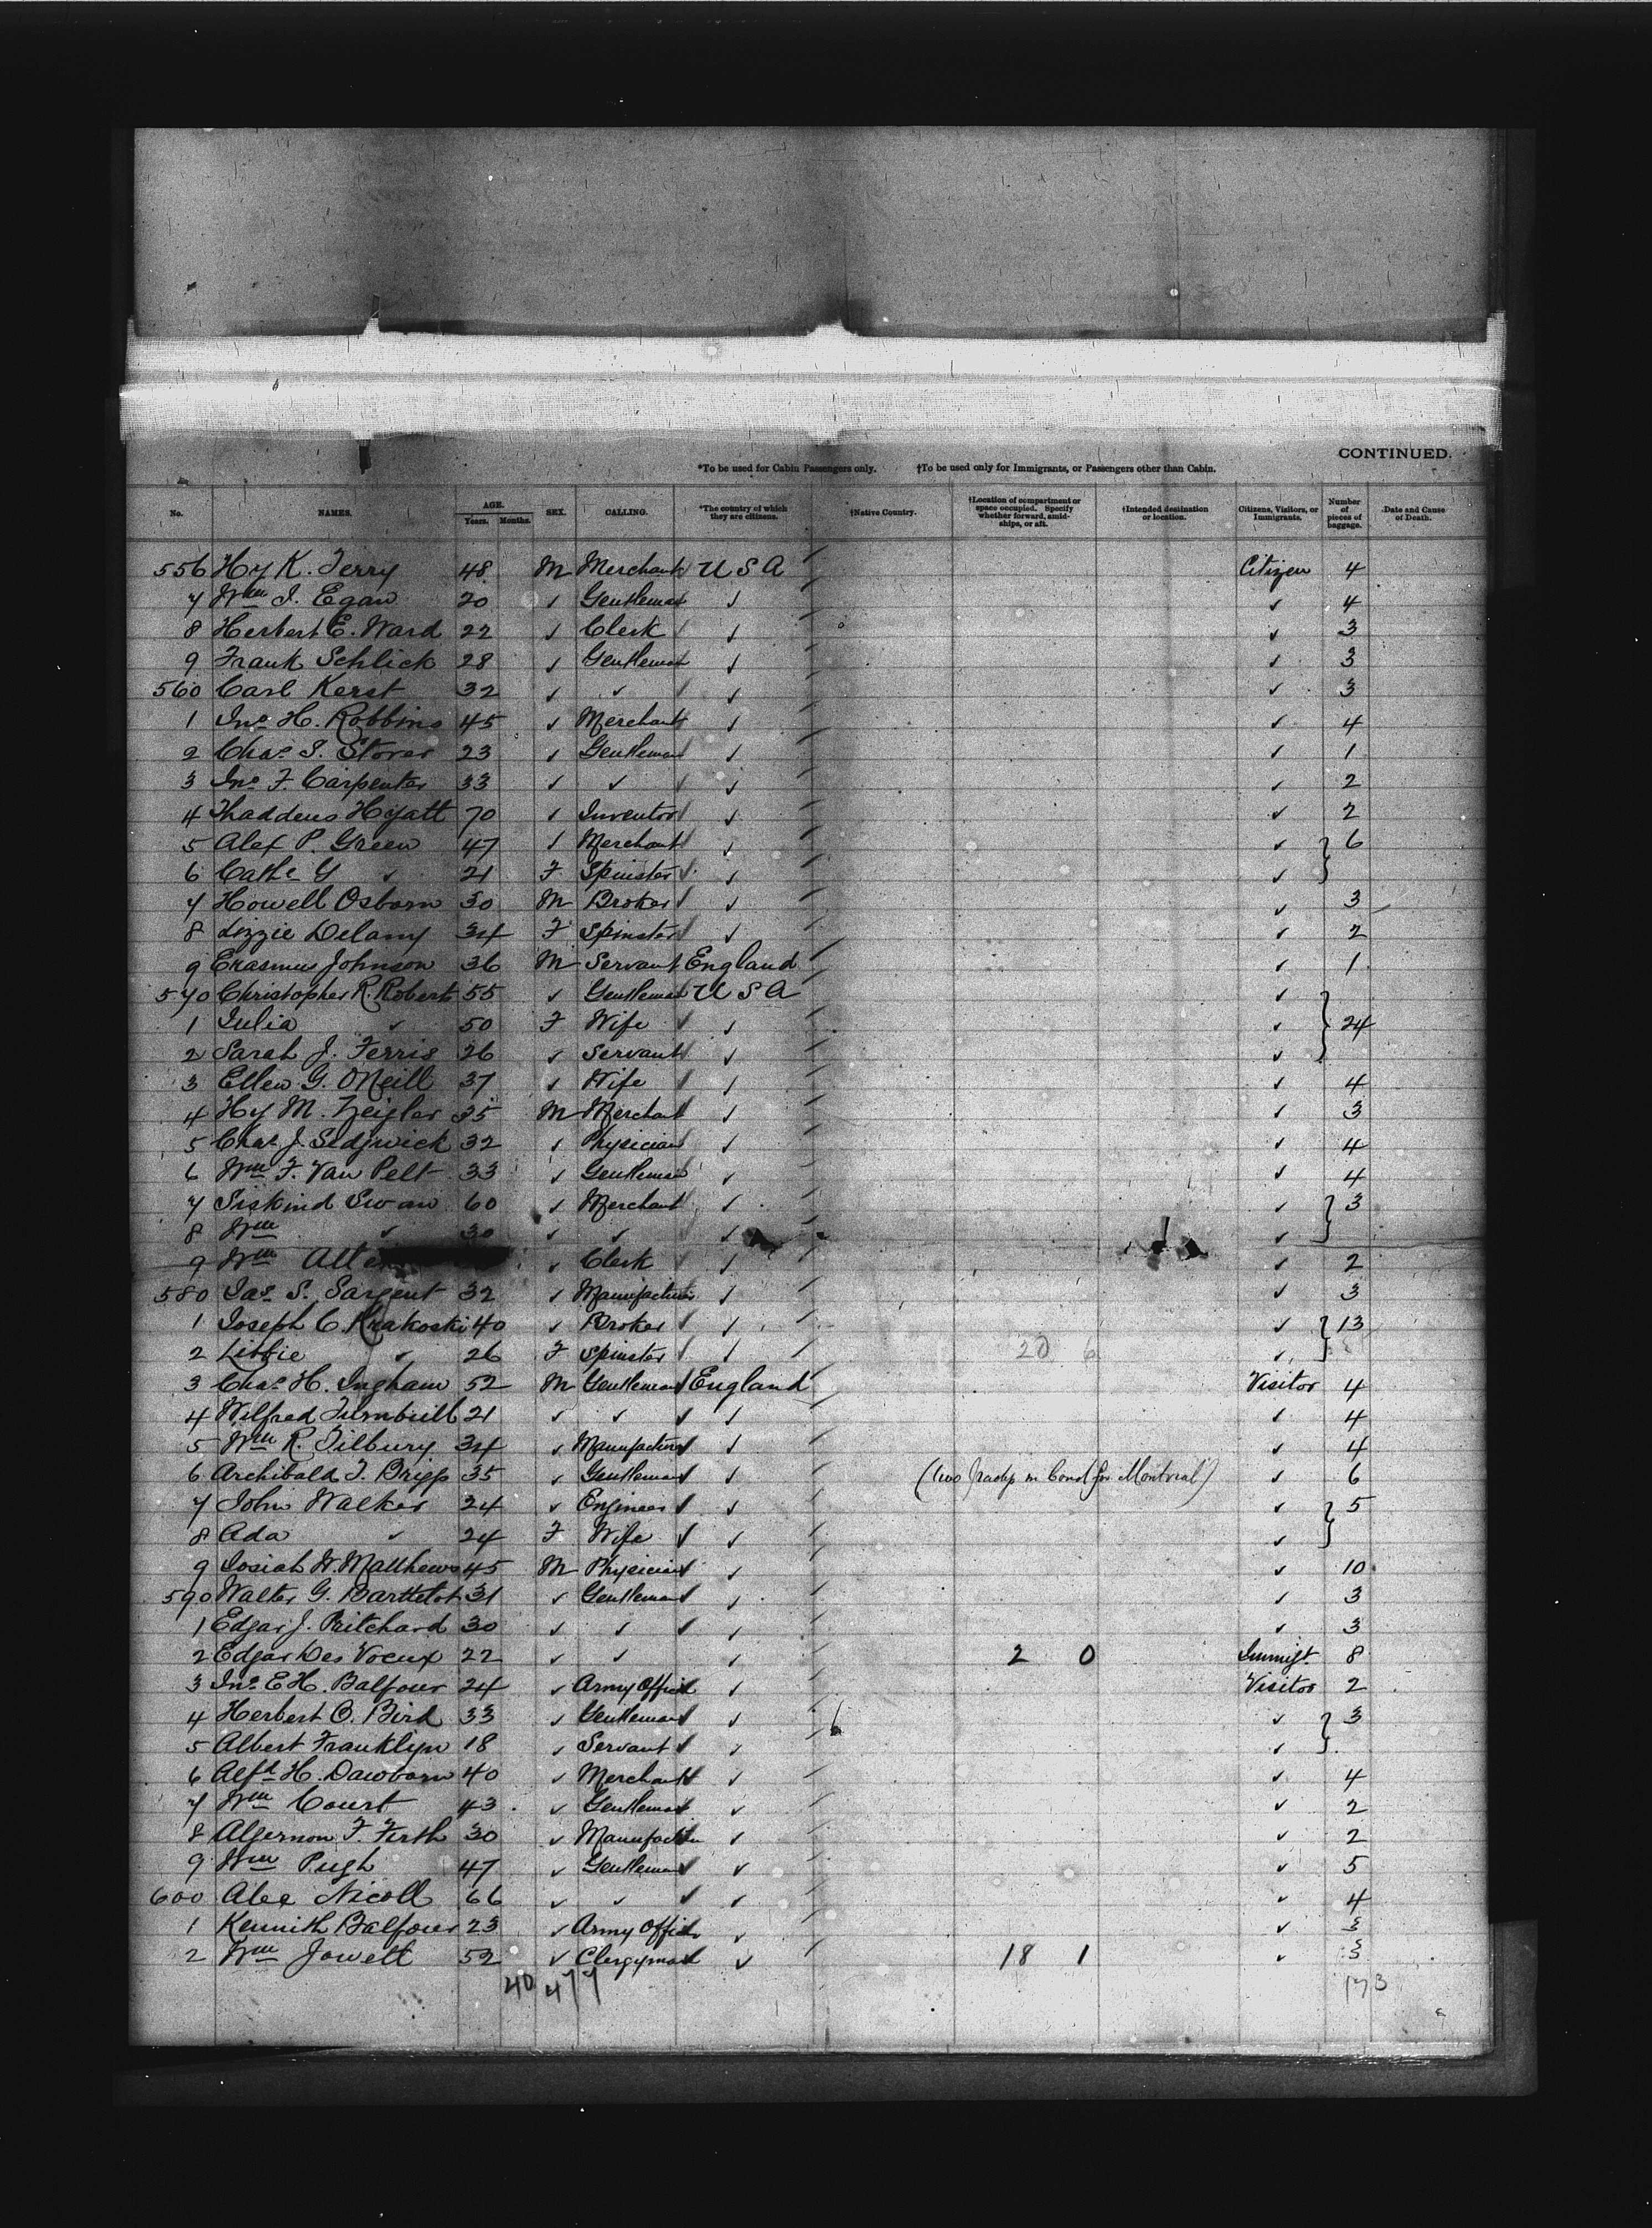 CONTINUED.
*To be used for Cabin Passengers only. †To be used only for Immigrants, or Passengers other than Cabin.
No. NAMES. AGE. Years. Months. SEX. CALLING. *The country of which they are citizens. †Native Country. †Location of compartment or space occupied. Specify whether forward, amidships, or aft. †Intended destination or location. Citizens, Visitors, or Immigrants. Number of pieces of baggage. Date and Cause of Death.
556 Hy K. Terry 48 M Merchant U S A Citizen 4
7 Wm J. Egan 20 ✓ Gentleman ✓ ✓ 4
8 Herbert E. Ward 22 ✓ Clerk ✓ ✓ 3
9 Frank Schlick 28 ✓ Gentleman ✓ ✓ 3
560 Carl Kerst 32 ✓ ✓ ✓ ✓ 3
1 Jno. H. Robbins 45 ✓ Merchant ✓ ✓ 4
2 Chas. S. Storer 23 ✓ Gentleman ✓ ✓ 1
3 Jno. F. Carpenter 33 ✓ ✓ ✓ ✓ 2
4 Thaddeus Hyatt 70 ✓ Inventor ✓ ✓ 2
5 Alex P. Green 47 ✓ Merchant ✓ ✓ 6
6 Cathe G ✓ 21 F Spinster ✓ ✓
7 Howell Osborn 30 M Broker ✓ ✓ 3
8 Lizzie Delany 34 F Spinster ✓ ✓ 2
9 Erasmus Johnson 36 M Servant England ✓ 1
570 Christopher R. Robert 55 ✓ Gentleman U S A ✓
1 Julia ✓ 50 F Wife ✓ ✓ 24
2 Sarah J. Ferris 26 ✓ Servant ✓ ✓
3 Ellen G. ONeill 37 ✓ Wife ✓ ✓ 4
4 Hy M. Zeigler 35 M Merchant ✓ ✓ 3
5 Chas. J. Sedgwick 32 ✓ Physician ✓ ✓ 4
6 Wm F. Van Pelt 33 ✓ Gentleman ✓ ✓ 4
7 Siskind Swan 60 ✓ Merchant ✓ ✓ 3
8 Wm ✓ 30 ✓ ✓ ✓ ✓
9 Wm ✓ Clerk ✓ ✓ 2
580 Jas. S. Sargent 32 ✓ Manufacturer ✓ ✓ 3
1 Joseph C. Krakoski 40 ✓ Broker ✓ ✓ 13
2 Libbie ✓ 26 F Spinster ✓ 20 6 ✓
3 Chas. H. Ingham 52 M Gentleman England Visitor 4
4 Wilfred Turnbull 21 ✓ ✓ ✓ ✓ 4
5 Wm R. Tilbury 34 ✓ Manufacturer ✓ ✓ 4
6 Archibald T. Briggs 35 ✓ Gentleman ✓ (two in bond for Montreal) ✓ 6
7 John Walker 24 ✓ Engineer ✓ ✓ 5
8 Ada ✓ 24 F Wife ✓ ✓
9 Josiah W. Matthews 45 M Physician ✓ ✓ 10
590 Walter G. Barttelot 31 ✓ Gentleman ✓ ✓ 3
1 Edgar J. Pritchard 30 ✓ ✓ ✓ ✓ 3
2 Edgar Des Voeux 22 ✓ ✓ ✓ 2 0 Immigt. 8
3 Jno. E H. Balfour 24 ✓ Army Officer ✓ Visitor 2
4 Herbert O. Bird 33 ✓ Gentleman ✓ ✓ 3
5 Albert Franklyn 18 ✓ Servant ✓ ✓
6 Alfd H. Dawbarn 40 ✓ Merchant ✓ ✓ 4
7 Wm Court 43 ✓ Gentleman ✓ ✓ 2
8 Algernon F. Firth 30 ✓ Manufacturer ✓ ✓ 2
9 Wm Pugh 47 ✓ Gentleman ✓ ✓ 5
600 Alex Nicoll 66 ✓ ✓ ✓ ✓ 4
1 Kennith Balfour 23 ✓ Army Officer ✓ ✓ 3
2 Wm Jowett 52 ✓ Clergyman ✓ 18 1 ✓ 3
40 477 173